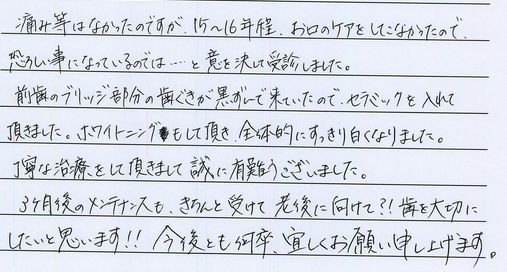 痛み等はなかったのですが、15~16年程、お口のケアをしてこなかったので、
恐ろしい事になっているのでは…と意を決して受診しました。
前歯のブリッジ部分の歯ぐきが黒ずんで来ていたので、セラミックを入れて
頂きました。ホワイトニングもして頂き、全体的にすっきり白くなりました。
丁寧な治療をして頂きまして誠に有難うございました。
3ヶ月後のメンテナンスも、きちんと受けて老後に向けて?!歯を大切に
したいと思います!!今後とも何卒、宜しくお願い申し上げます。